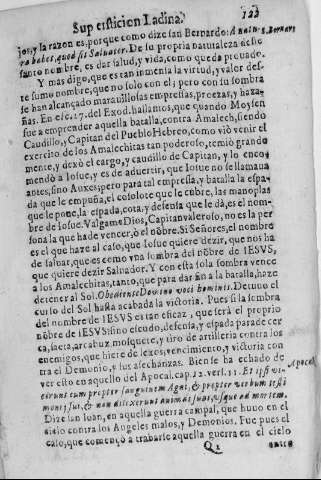 Superſticion Ladina. 123
jos, y la razon es, porque como dize ſan Bernardo: A natu- S. Bernar.
ra habet, quod ſit Saluator. De ſu propria naturaleza tiene
ſanto nombre, es dar ſalud, y vida, como queda prouado.
Y mas digo, que es tan inmenſa la virtud, y valer deſ-
te ſumo nombre, que no ſolo con el; pero con ſu ſombra
ſe han alcançado marauilloſas empreſſas, proezas, y haza-
ñas. En el c. 17. del Exod. hallamos, que quando Moyſen
fue a emprender aquella batalla, contra Amalech, ſiendo
Caudillo, y Capitan del Pueblo Hebreo, como viò venir el
exercito de los Amalechitas tan poderoſo, temiò grande
mente, y dexò el cargo, y caudillo de Capitan, y lo enco-
mendò a Ioſue, y es de aduertir, que Ioſue no ſe llamaua
antes, ſino Auxes, pero para tal empreſſa, y batalla la eſpa-
da que le empuña, el coſolote que le cubre, las manoplas
que le pone, la eſpada, cota, y defenſa que le dà, es el nom-
bre de Ioſue. Valgame Dios, Capitan valeroſo, no es la per
ſona la que ha de vencer, ò el nõbre. Si Señores, el nombre
es el que haze al caſo, que Ioſue quiere dezir, que nos ha
de ſaluar, que es como vna ſombra del nõbre de IESVS,
que quiere dezir Saluador. Y con eſta ſola ſombra vence
a los Amalechitas, tanto, que para dar fin a la batalla, haze
detener al Sol. Obediente Domino voci hominis. Detuuo el
curſo del Sol haſta acabada la victoria. Pues ſi la ſombra
del nombre de IESVS es tan eficaz, que ſerà el proprio
nõbre de IESVS: ſino eſcudo, defenſa, y eſpada para de cer
ca, ſaeta, arcabuz, moſquete, y tiro de artilleria contra los
enemigos, que hiere de lexos, vencimiento, y victoria con
tra el Demonio, y ſus aſechanzas. Bien ſe ha echado de
ver eſto en aquello del Apocal. cap. 12. verſ. 11. Et ipſi vi- Apocal.
cerunt eum propter ſanguinem Agni, & propter verbum teſti
monij ſui, & non dilexerunt animas ſuas, vſque ad mortem.
Dize ſan Iuan, en aquella guerra campal, que huuo en el
cielo contra los Angeles malos, y Demonios. Fue pues el
caſo, que començò a trabarſe aquella guerra en el cielo
Q 2